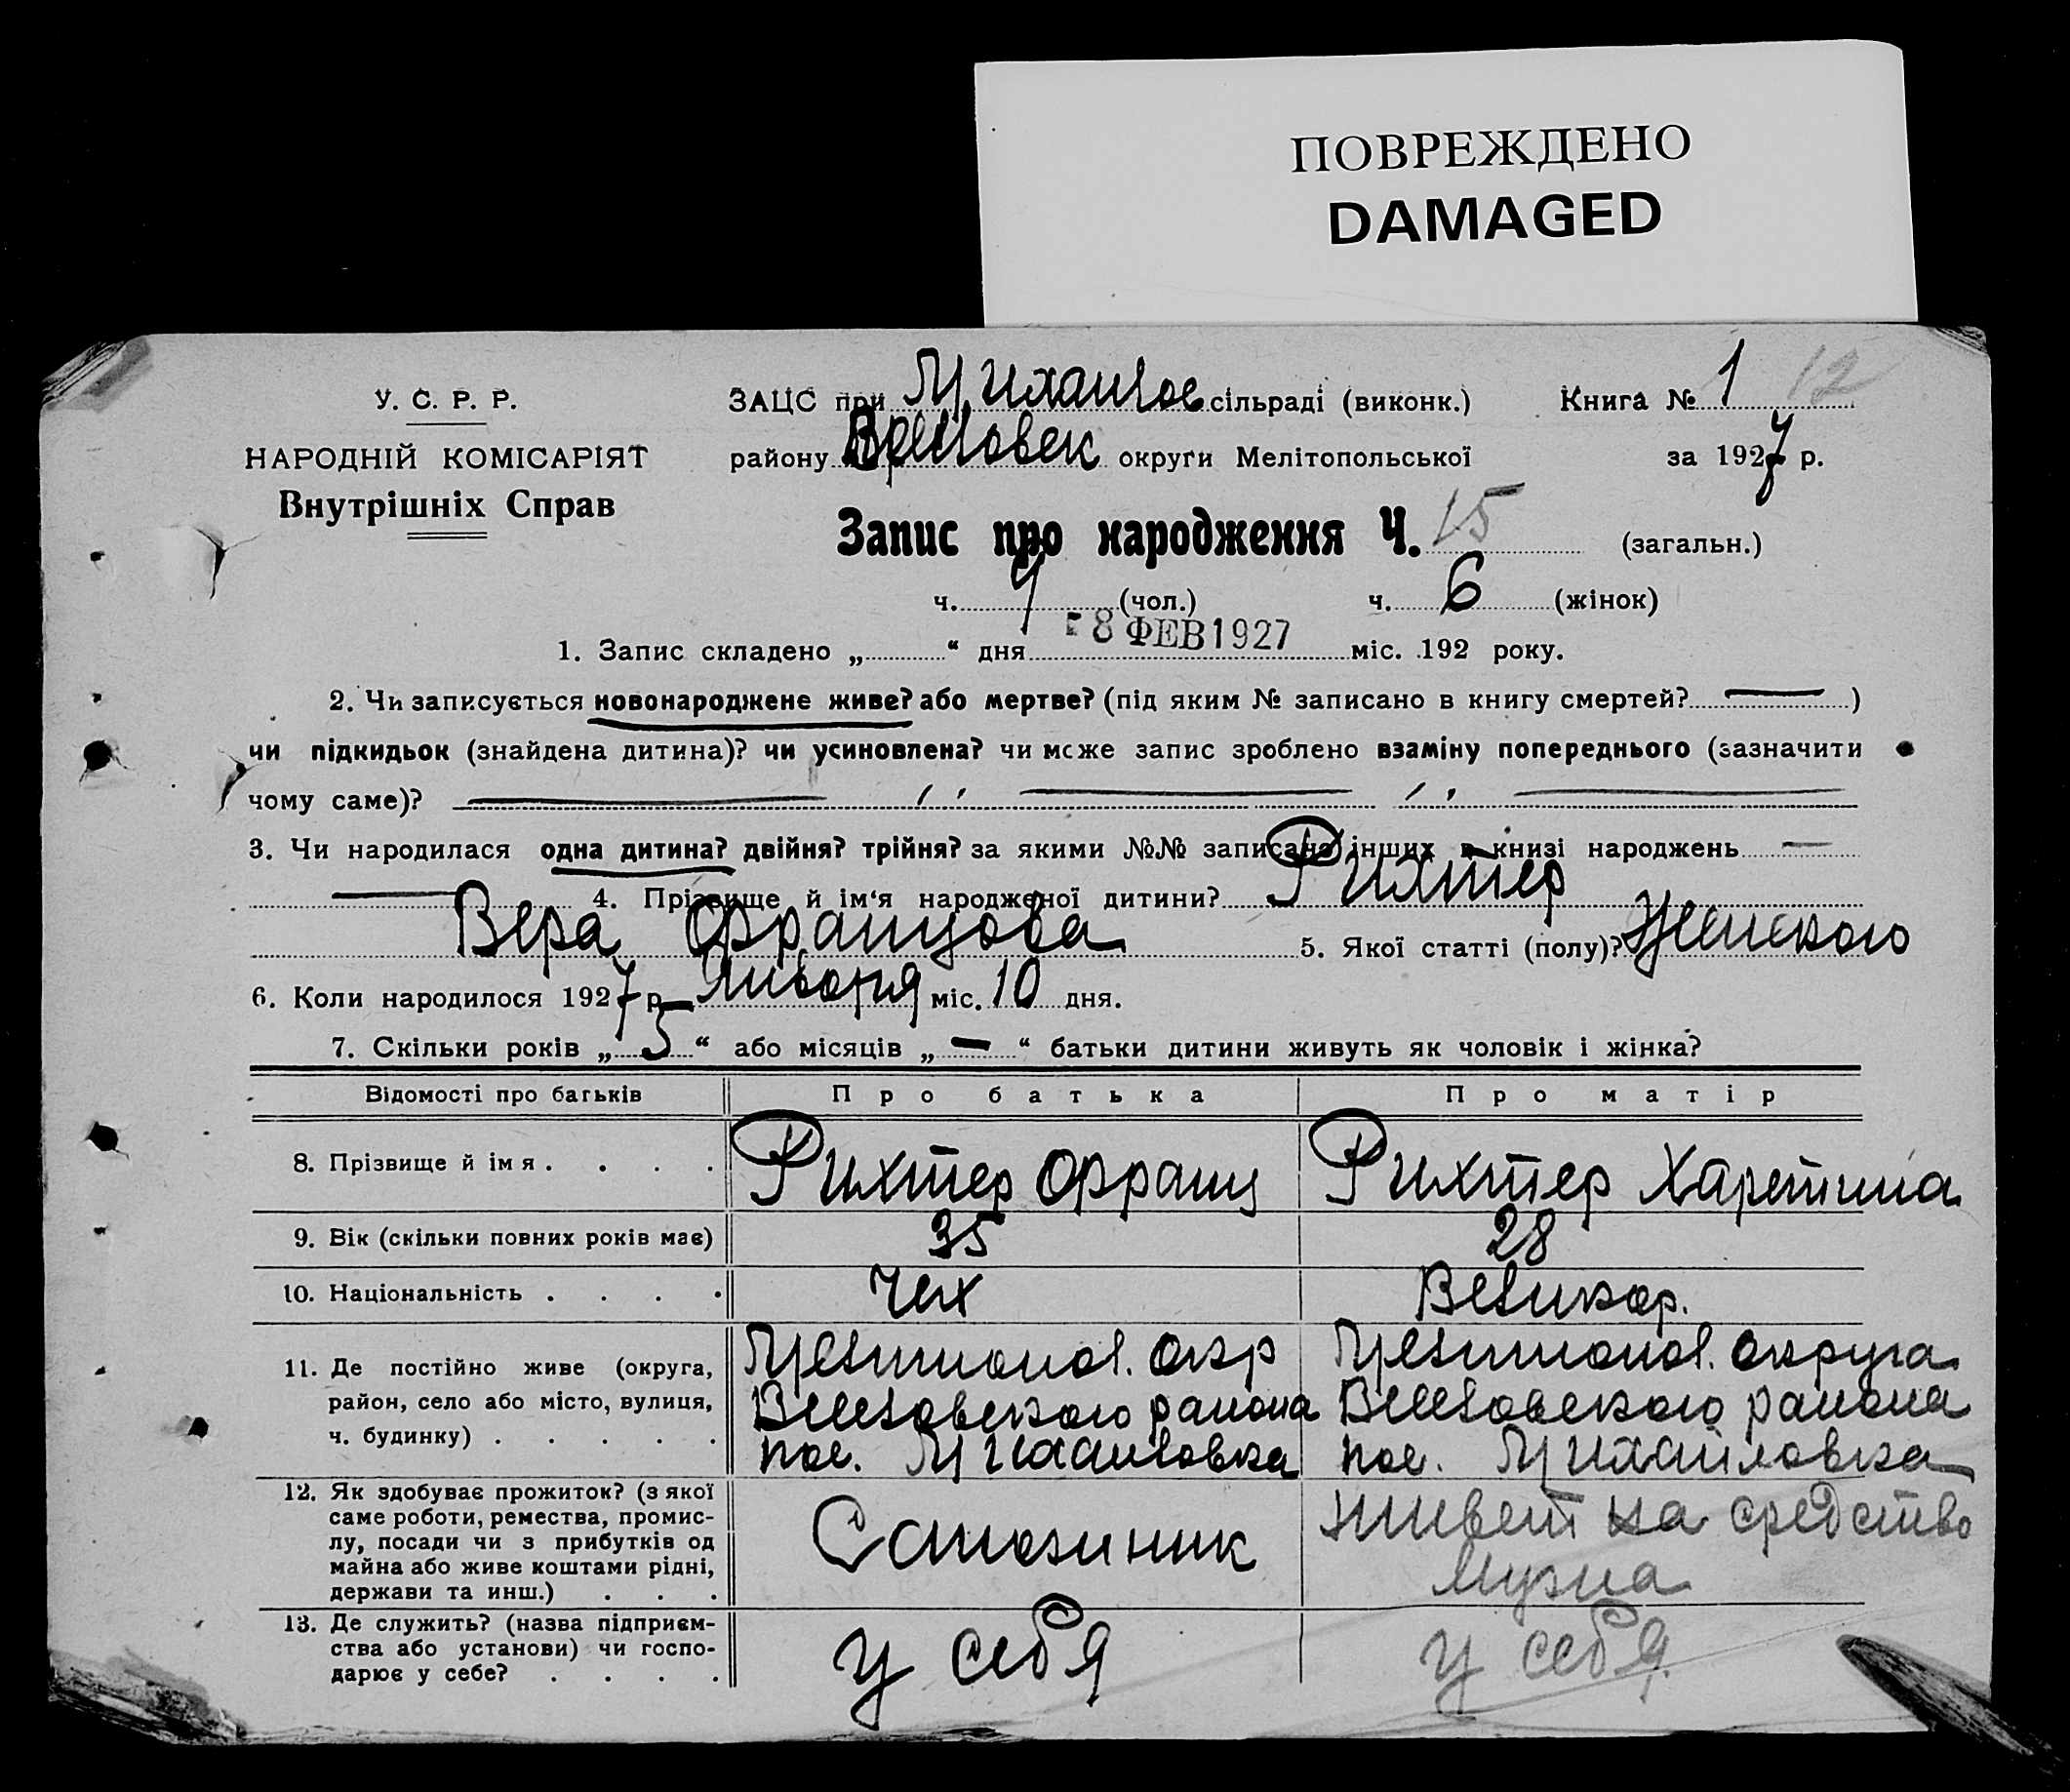 ПОВРЕЖДЕНО
DAMAGED
У. С. Р. Р.
НАРОДНІЙ КОМІСАРІЯТ
Внутрішніх Справ
ЗАЦС при Михайлов сільраді (виконк.)
району округи Мелітопольської
Книга № 1 12
за 1927 р.
Запис про народження Ч. 15 (загальн.)
ч. 9 (чол.) ч. 6 (жінок)
1. Запис складено „ “ дня 8 ФЕВ 1927 міс. 192 року.
2. Чи записується новонароджене живе? або мертве? (під яким № записано в книгу смертей? — )
чи підкидьок (знайдена дитина)? чи усиновлена? чи може запис зроблено взаміну попереднього (зазначити
чому саме)? — ‚‚ — ‚‚ —
3. Чи народилася одна дитина? двійня? трійня? за якими №№ записано інших в книзі народжень —
— 4. Прізвище й ім‘я народженої дитини? Рихтер
Вера Францова 5. Якої статті (полу)? Женского
6. Коли народилося 1927 р. Января міс. 10 дня.
7. Скільки років „ 5 “ або місяців „ — “ батьки дитини живуть як чоловік і жінка?
Відомості про батьків Про батька Про матір
8. Прізвище й імя . . . . Рихтер Франц Рихтер Харетина
9. Вік (скільки повних років має) 35 28
10. Національність . . . . Чех Великор.
11. Де постійно живе (округа, Мелитопол. окр Мелитопол. округа
район, село або місто, вулиця, Веселовского района Веселовского района
ч. будинку) . . . . . пос. Михайловка пос. Михайловка
12. Як здобуває прожиток? (з якої
саме роботи, ремества, промис-
лу, посади чи з прибутків од
майна або живе коштами рідні,
держави та инш.) . . .
Сапожник
живет на средство
мужа
13. Де служить? (назва підприєм-
ства або установи) чи госпо-
дарює у себе? . . . .
у себя
у себя.